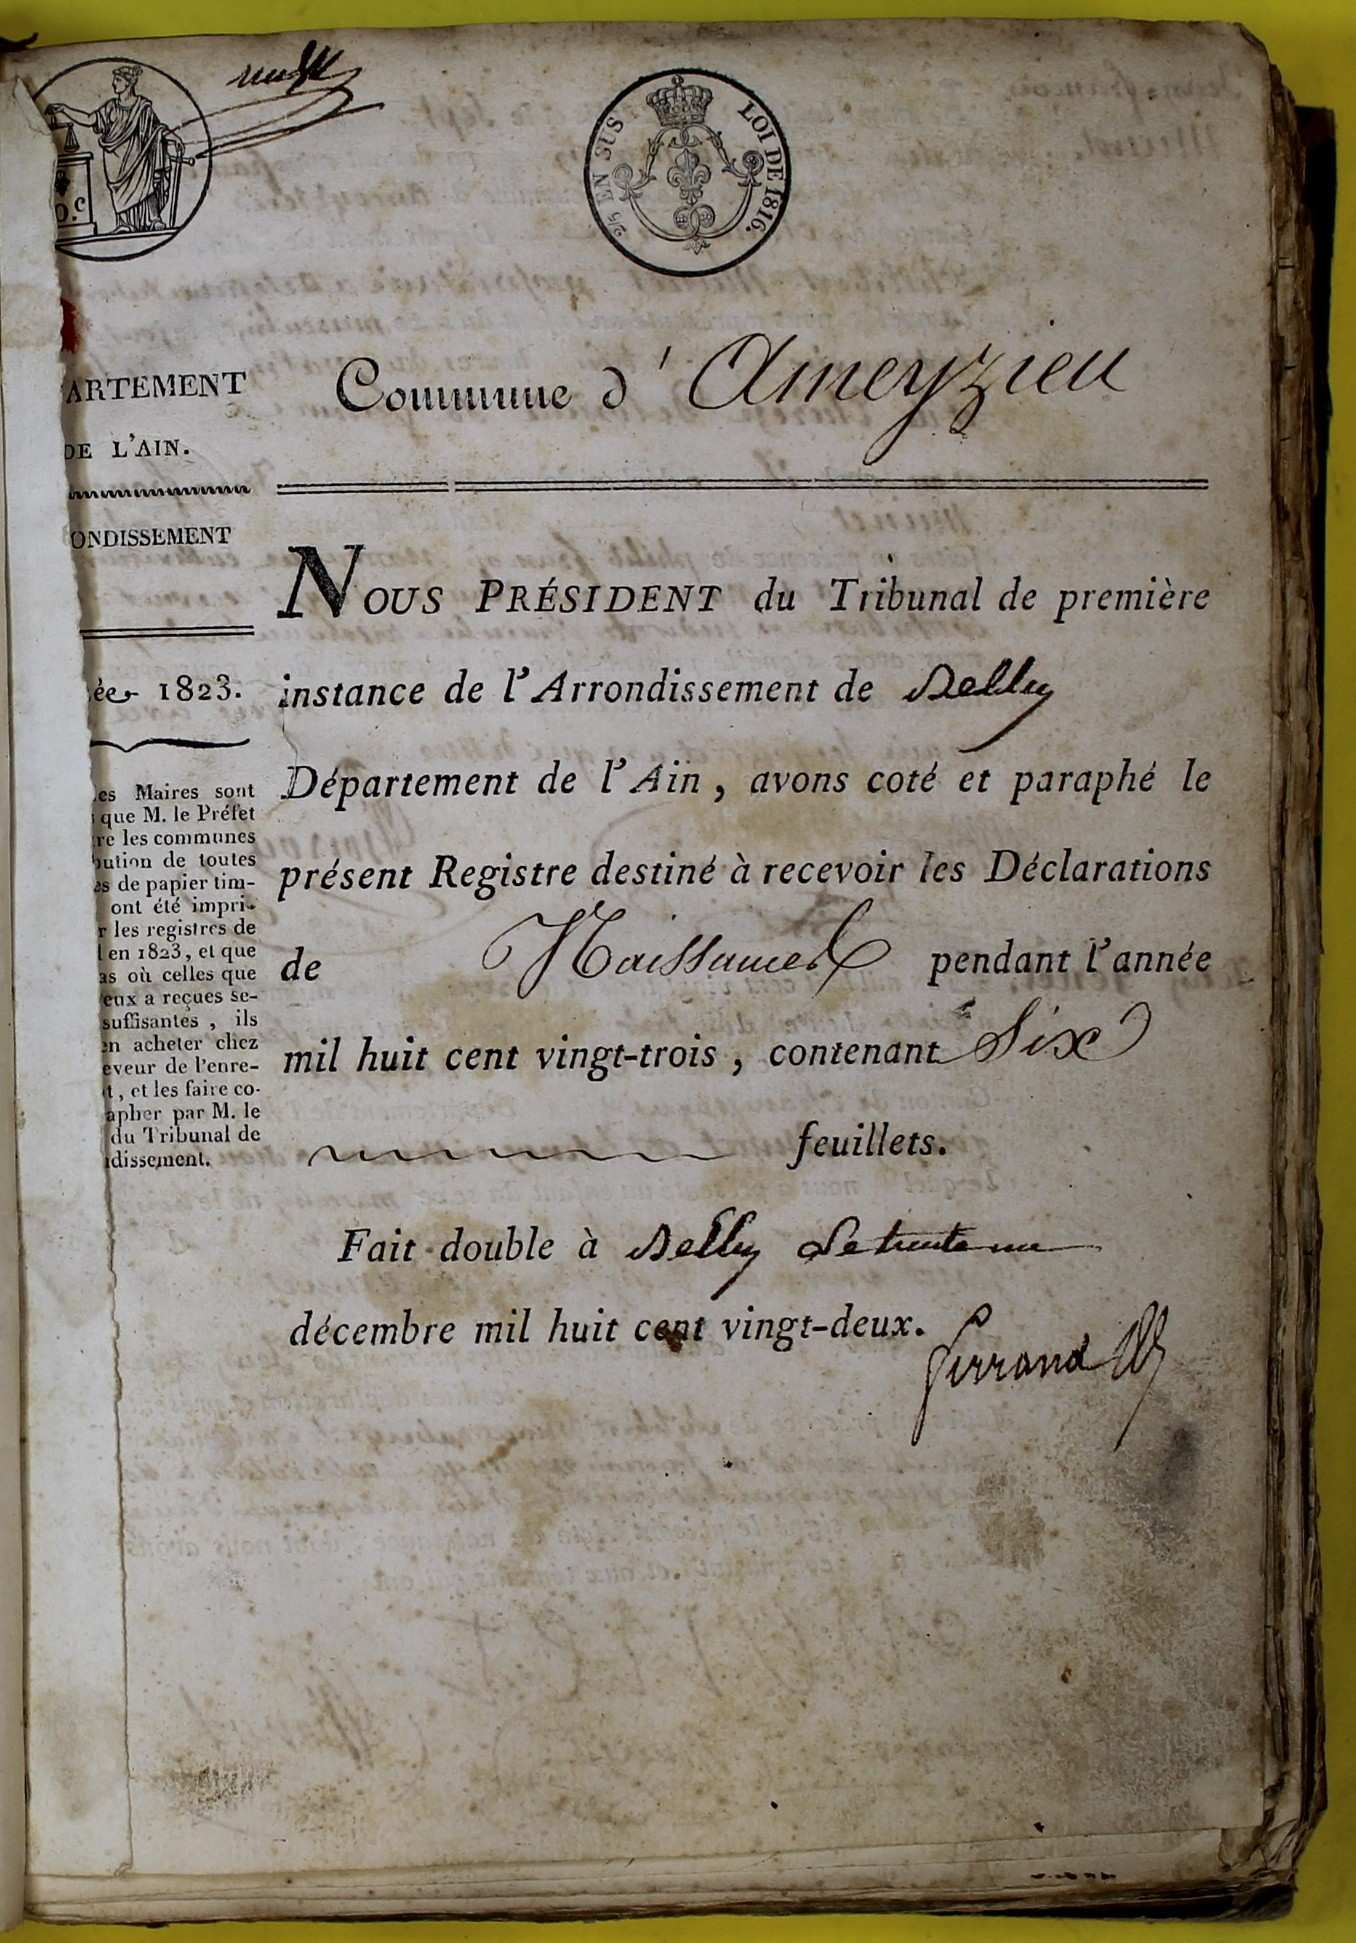 2/5 EN SUS LOI DE 1816.
D.C
ARTEMENT
DE L'AIN.
ONDISSEMENT
ée 1823.
es Maires sont
que M. le Préfet
re les communes
bution de toutes
es de papier tim-
ont été impri-
r les registres de
l en 1823, et que
as où celles que
eux a reçues se-
suffisantes, ils
en acheter chez
eveur de l'enre-
t, et les faire co-
apher par M. le
du Tribunal de
dissement.
Commune d'Ameyzieu
NOUS PRÉSIDENT du Tribunal de première
instance de l'Arrondissement de Belley
Département de l'Ain, avons coté et paraphé le
présent Registre destiné à recevoir les Déclarations
de Naissances pendant l'année
mil huit cent vingt-trois, contenant Six
feuillets.
Fait double à Belley Le trente un
décembre mil huit cent vingt-deux.